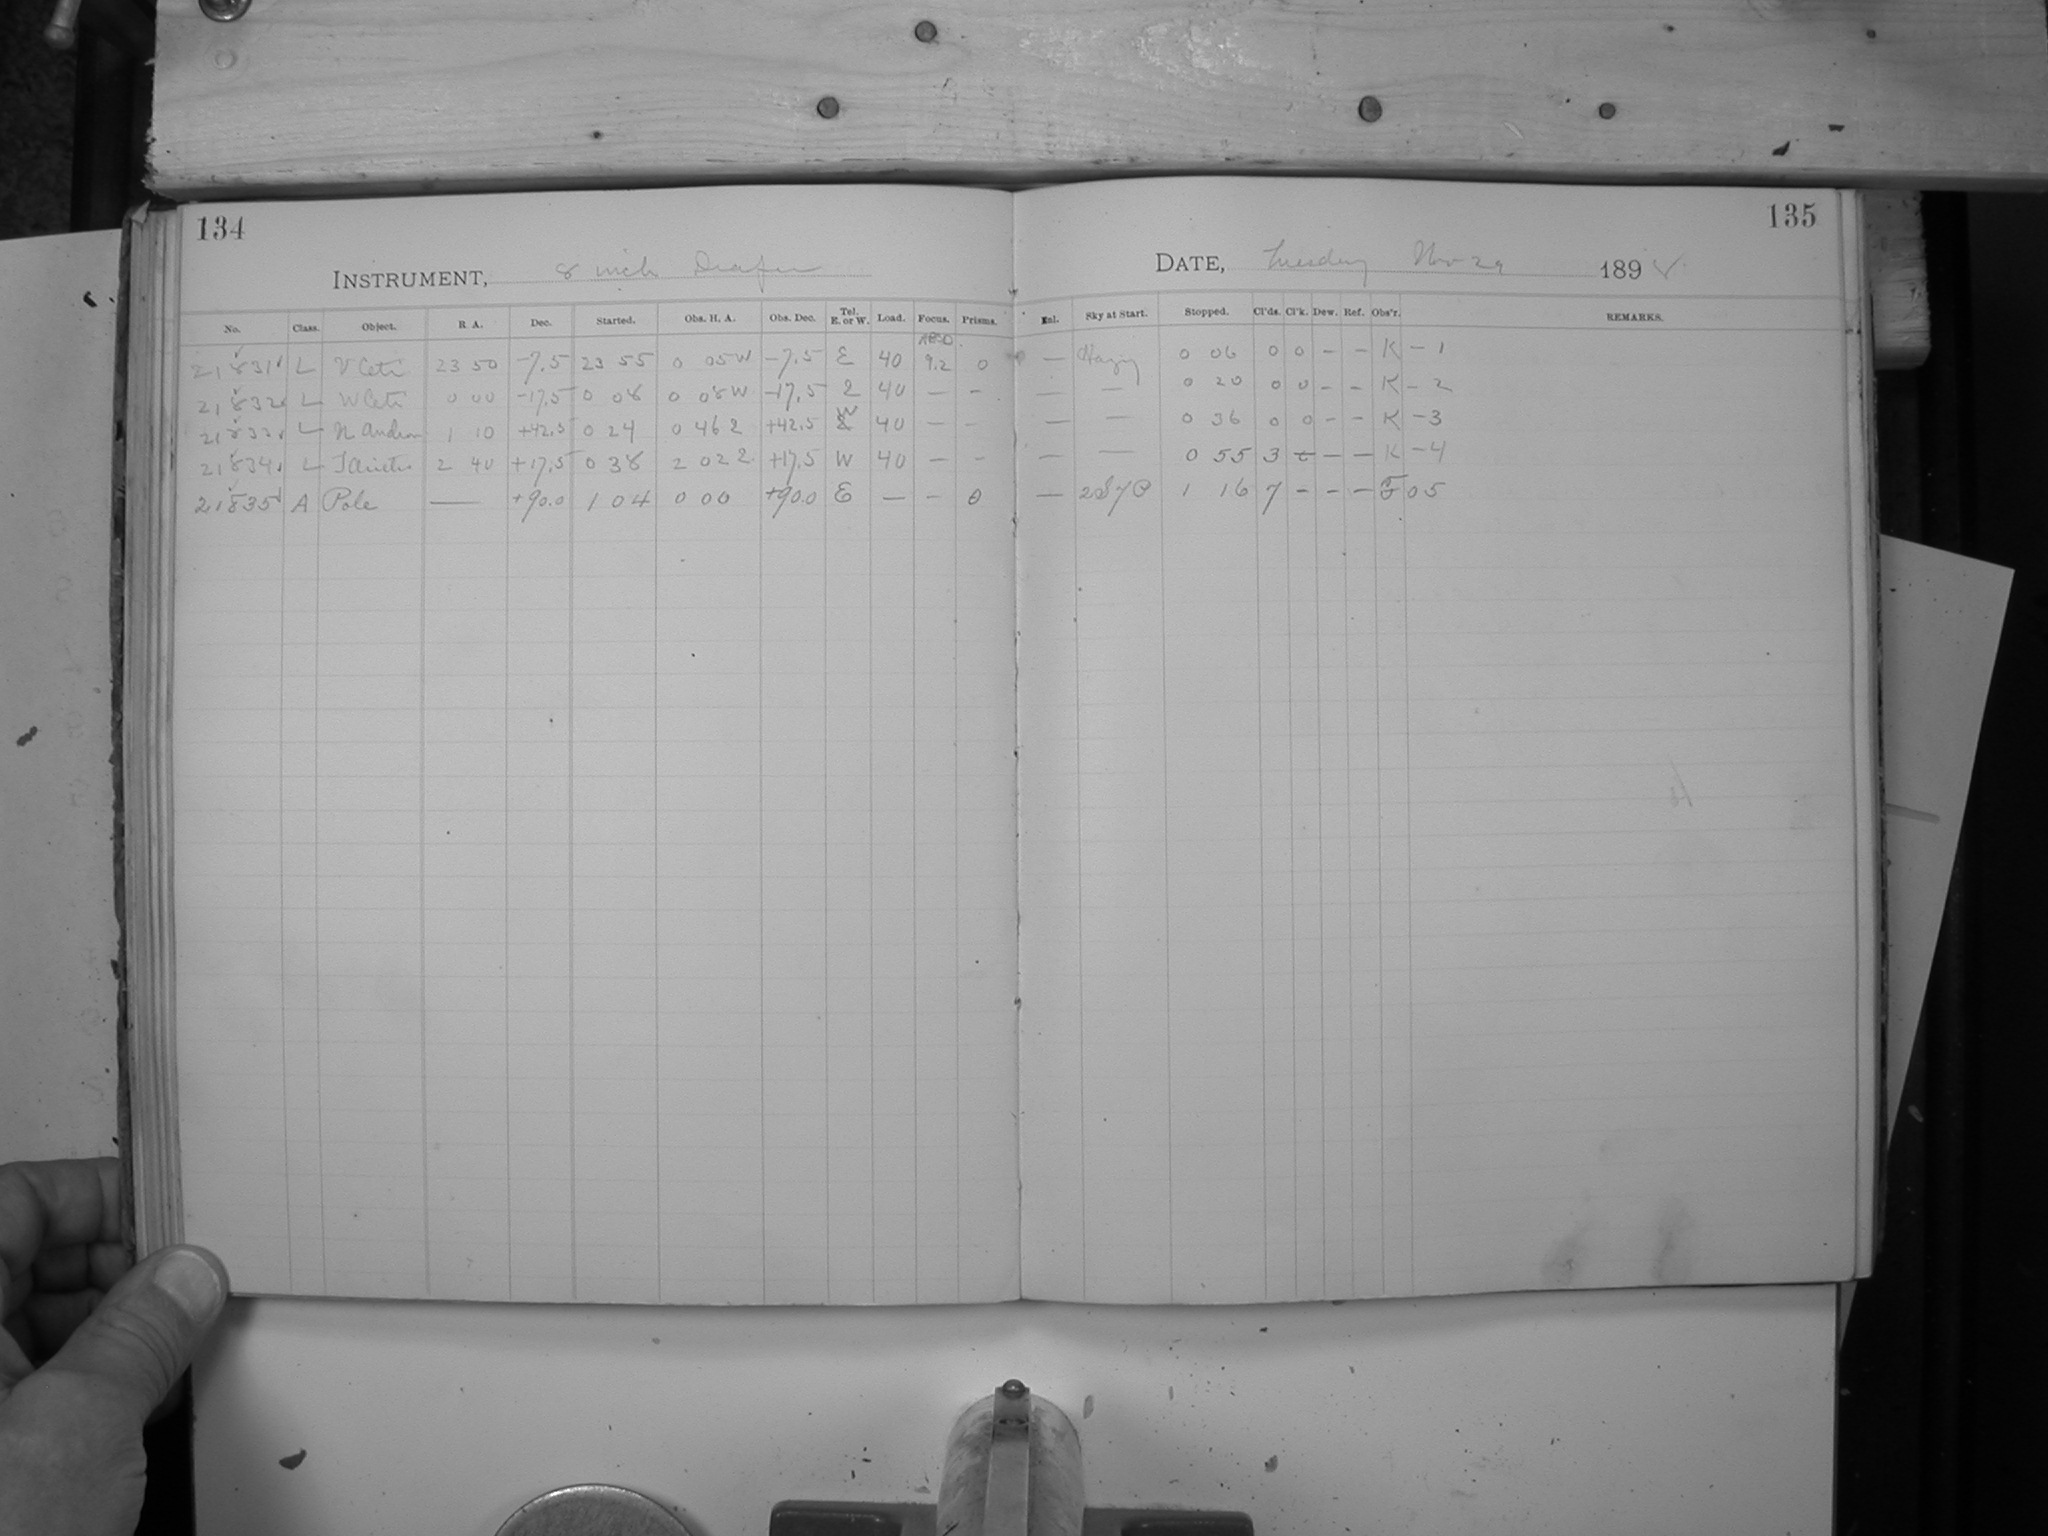 134
135
INSTRUMENT, 8 inch Draper
DATE, Tuesday Nov 29 1898
No. Class. Object. R. A. Dec. Started. Obs. H. A. Obs. Dec. Tel. E. or W. Load. Focus. Prisms. Enl. Sky at Start. Stopped. Cl'ds. Cl'k. Dew. Ref. Obs'r. REMARKS.
21831 L V Ceti 23 50 -7.5 23 55 0 05 W -7.5 E 40 9.2 0 — Hazy 0 06 0 0 - - K - 1
21832 L W Ceti 0 00 -17.5 0 08 0 08 W -17.5 E 40 — - — — 0 20 0 0 - - K - 2
21833 L N Androm 1 10 +42.5 0 24 0 46 E +42.5 W 40 — - — — 0 36 0 0 - - K - 3
21834 L T Arietis 2 40 +17.5 0 38 2 02 E +17.5 W 40 — - — — 0 55 3 - - K - 4
21835 A Pole — +90.0 1 04 0 00 +90.0 E — - 0 — 1 16 7 - - - 05